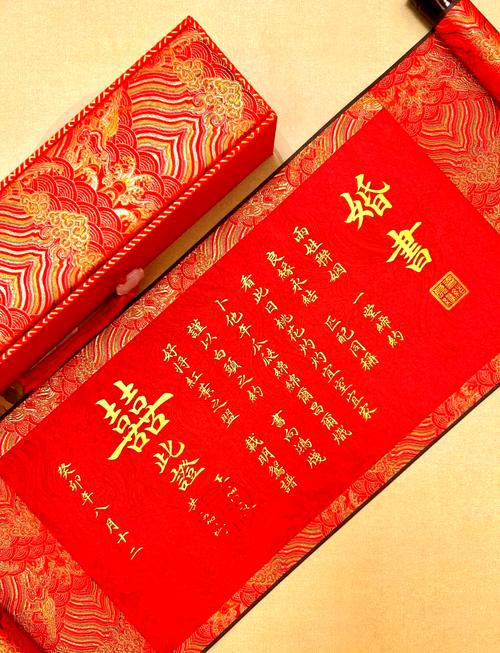 婚書
兩姓聯姻 一堂締約
良緣永結 匹配同稱
看此日桃花灼灼宜室宜家
卜他年瓜瓞綿綿爾昌爾熾
謹以白頭之約 書向鴻箋
好將紅葉之盟 載明鴛譜
囍此證
癸卯年八月十二